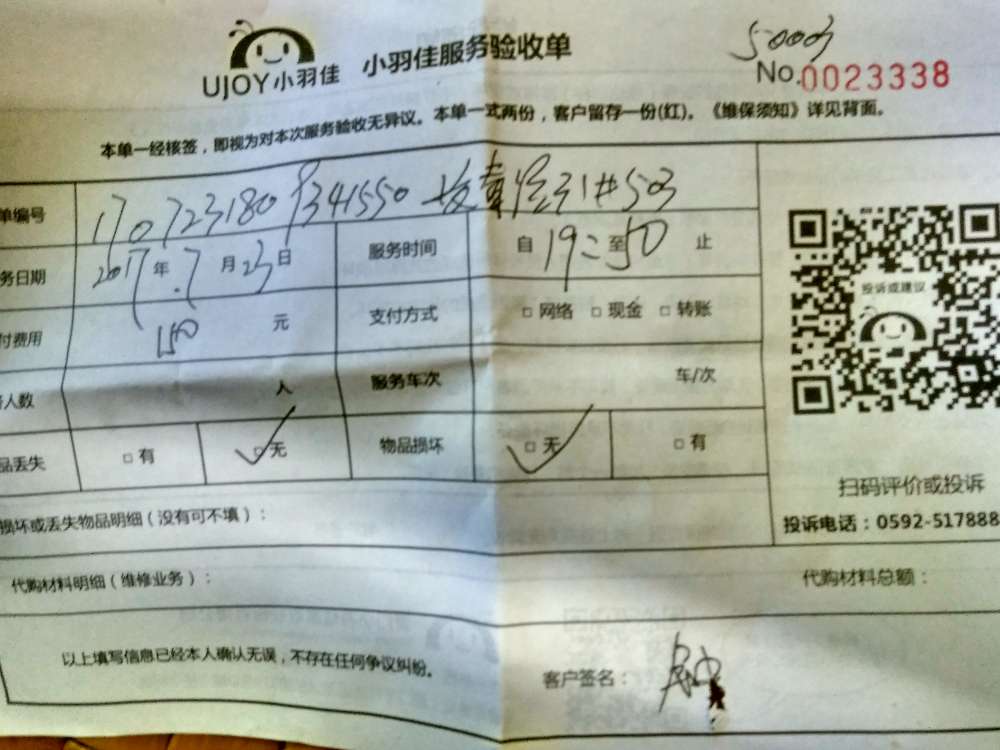 50003
UJOY小羽佳 小羽佳服务验收单
No.0023338
本单一经核签，即视为对本次服务验收无异议。本单一式两份，客户留存一份(红)。《维保须知》详见背面。
单编号 170723180 9341550 31#503
务日期 2017年.7月23日 服务时间 自19:至50止
付费用 150元 支付方式 □网络 □现金 □转账
人数 人 服务车次 车/次
品丢失 □有 □无 物品损坏 □无 □有
投诉或建议
扫码评价或投诉
投诉电话：0592-517888
损坏或丢失物品明细（没有可不填）：
代购材料明细（维修业务）： 代购材料总额：
以上填写信息已经本人确认无误，不存在任何争议纠纷。
客户签名：